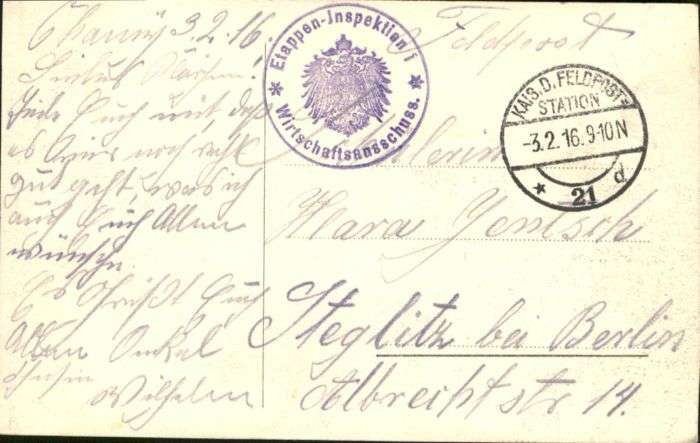 Chauny 3.2.16.
Liebes Klärchen!
Teile Euch mit, daß
es Uns noch recht
gut geht, was ich
auch Euch Allen
wünsche
Es Grüßt Euch
Allen Onkel
Wilhelm
Feldpost
Etappen-Inspektion 1
Wirtschaftsausschuss.
KAIS. D. FELDPOST-
STATION
-3.2.16.9-10N
21 d
Klara Jentsch
Steglitz bei Berlin
Albrechtstr 14.